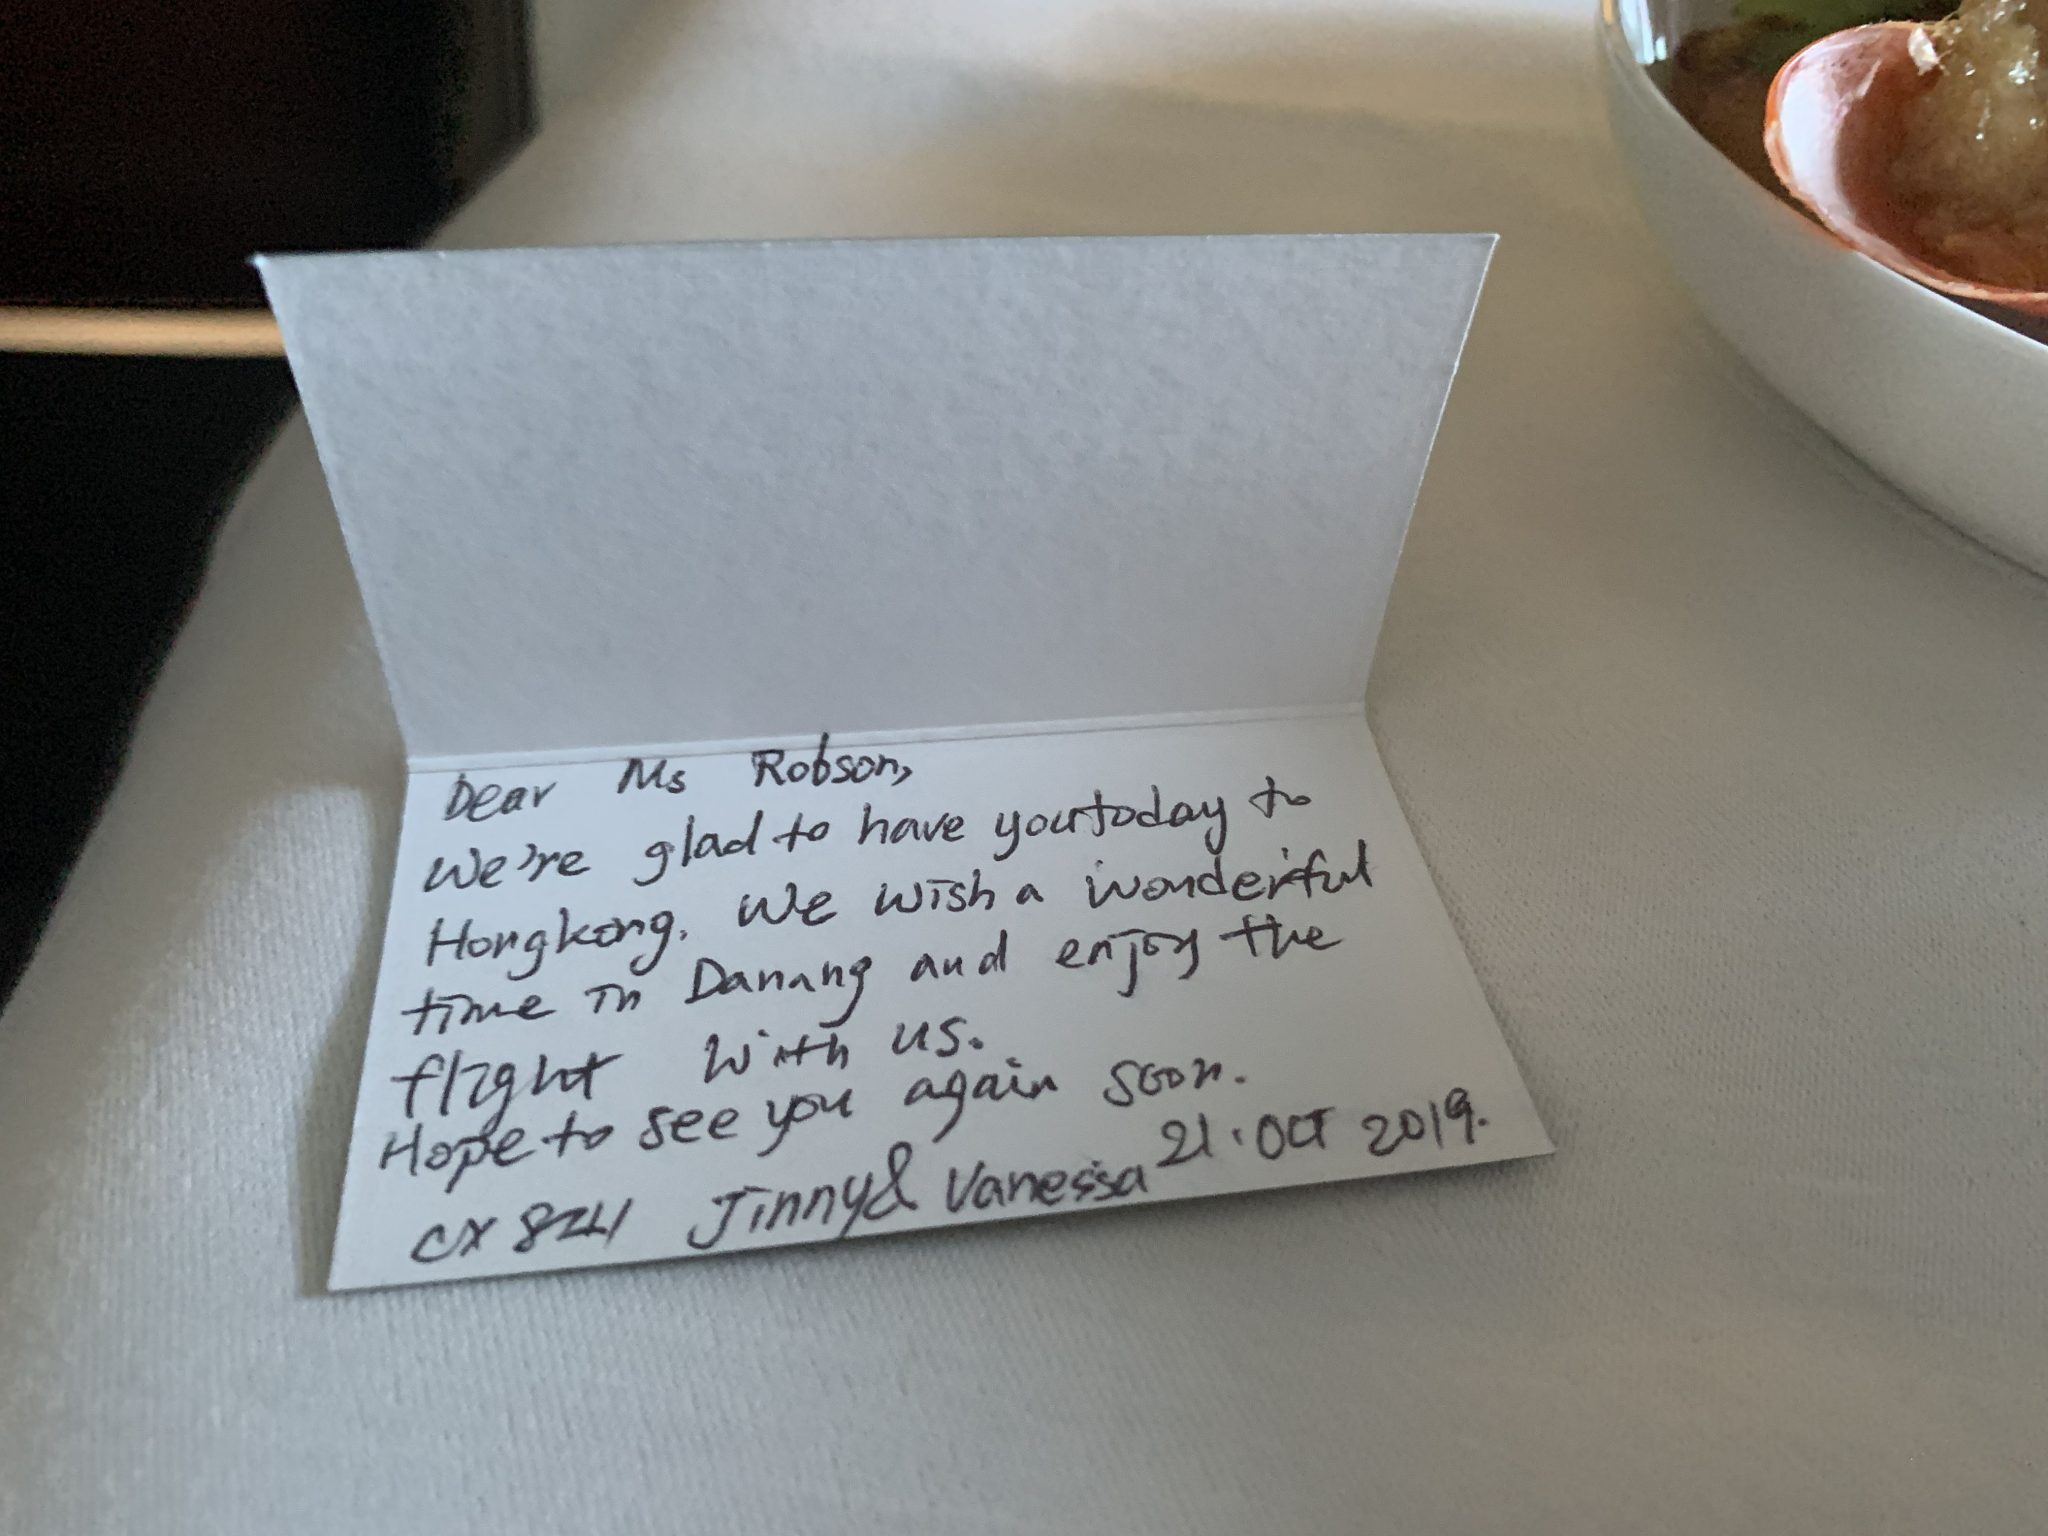 Dear Ms Robson,
We're glad to have you today to
Hongkong. We wish a wonderful
time in Danang and enjoy the
flight with us.
Hope to see you again soon.
21. OCT 2019.
CX Jinny & Vanessa